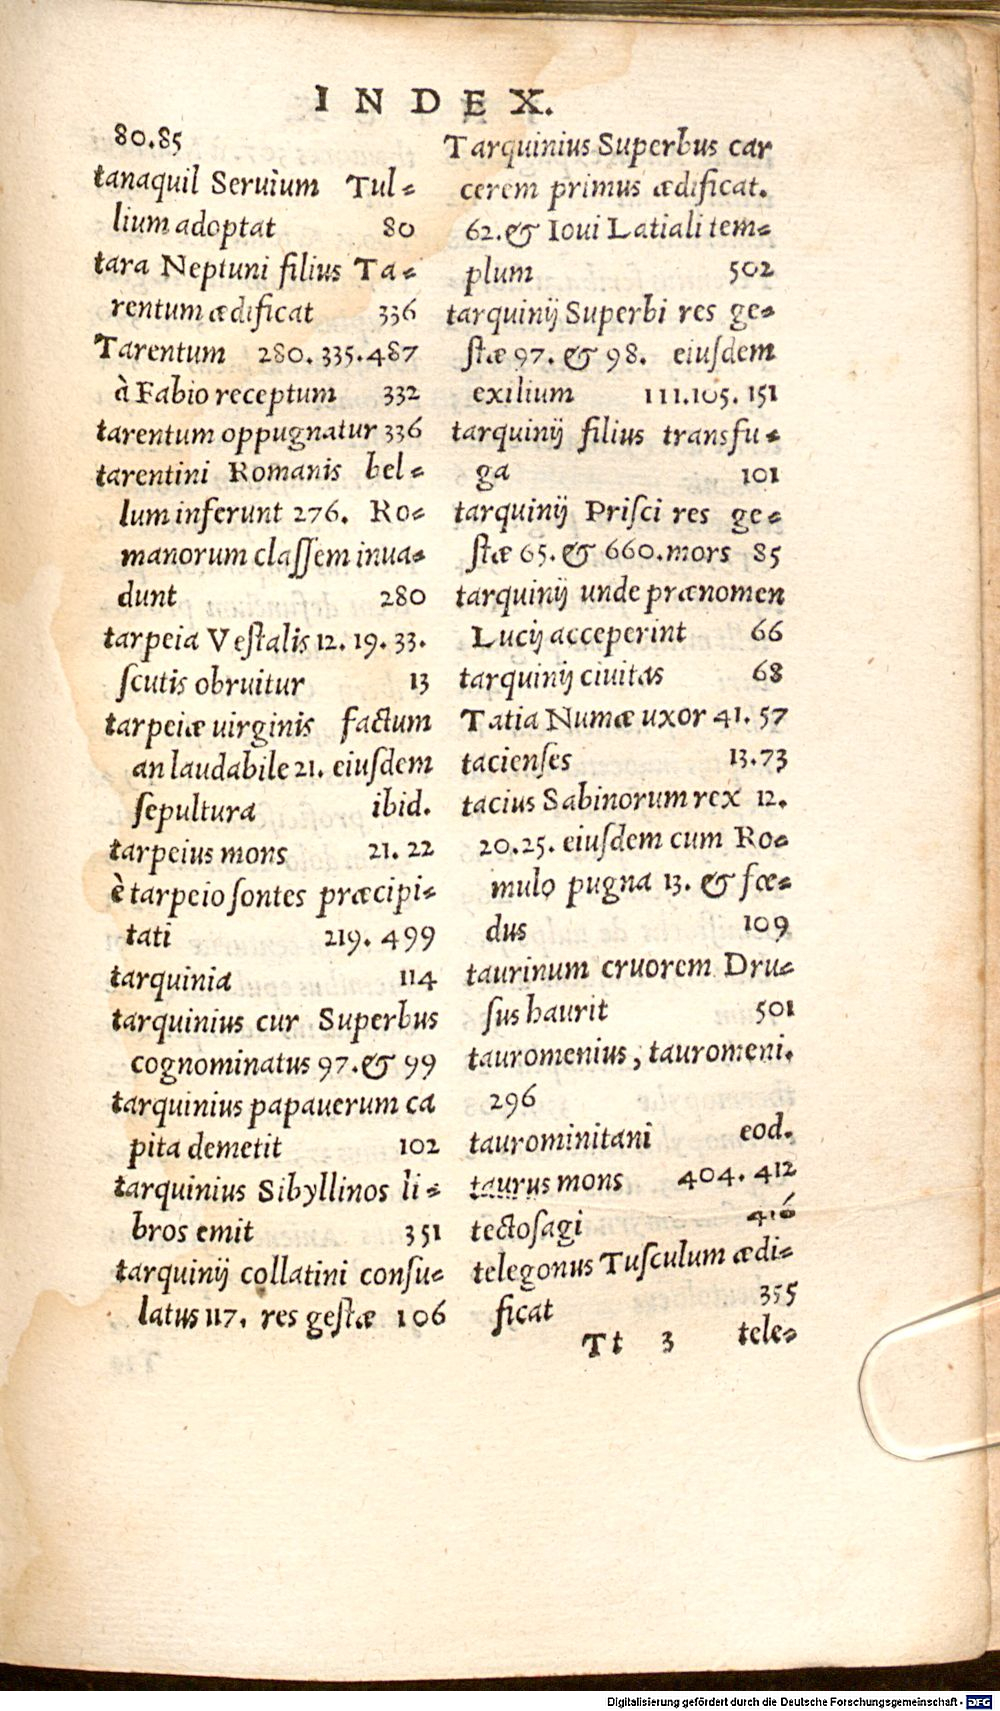 INDEX.
80.85
tanaquil Seruium Tul-
lium adoptat 80
tara Neptuni filius Ta-
rentum ædificat 336
Tarentum 280. 335. 487
à Fabio receptum 332
tarentum oppugnatur 336
tarentini Romanis bel-
lum inferunt 276. Ro-
manorum claſſem inua-
dunt 280
tarpeia Veſtalis 12. 19. 33.
ſcutis obruitur 13
tarpeiæ uirginis factum
an laudabile 21. eiuſdem
ſepultura ibid.
tarpeius mons 21. 22
è tarpeio ſontes præcipi-
tati 219. 499
tarquinia 114
tarquinius cur Superbus
cognominatus 97. & 99
tarquinius papauerum ca
pita demetit 102
tarquinius Sibyllinos li-
bros emit 351
tarquinij collatini conſu-
latus 117. res geſtæ 106
Tarquinius Superbus car
cerem primus ædificat.
62. & Ioui Latiali tem-
plum 502
tarquinij Superbi res ge-
ſtæ 97. & 98. eiuſdem
exilium 111.105. 151
tarquinij filius transfu-
ga 101
tarquinij Priſci res ge-
ſtæ 65. & 660. mors 85
tarquinij unde prænomen
Lucij acceperint 66
tarquinij ciuitas 68
Tatia Numæ uxor 41. 57
tacienſes 13.73
tacius Sabinorum rex 12.
20.25. eiuſdem cum Ro-
mulo pugna 13. & fœ-
dus 109
taurinum cruorem Dru-
ſus haurit 501
tauromenius, tauromeni.
296
taurominitani eod.
taurus mons 404. 412
tectoſagi 416
telegonus Tuſculum ædi-
ficat 355
Tt 3 tele-
Digitalisierung gefördert durch die Deutsche Forschungsgemeinschaft - DFG